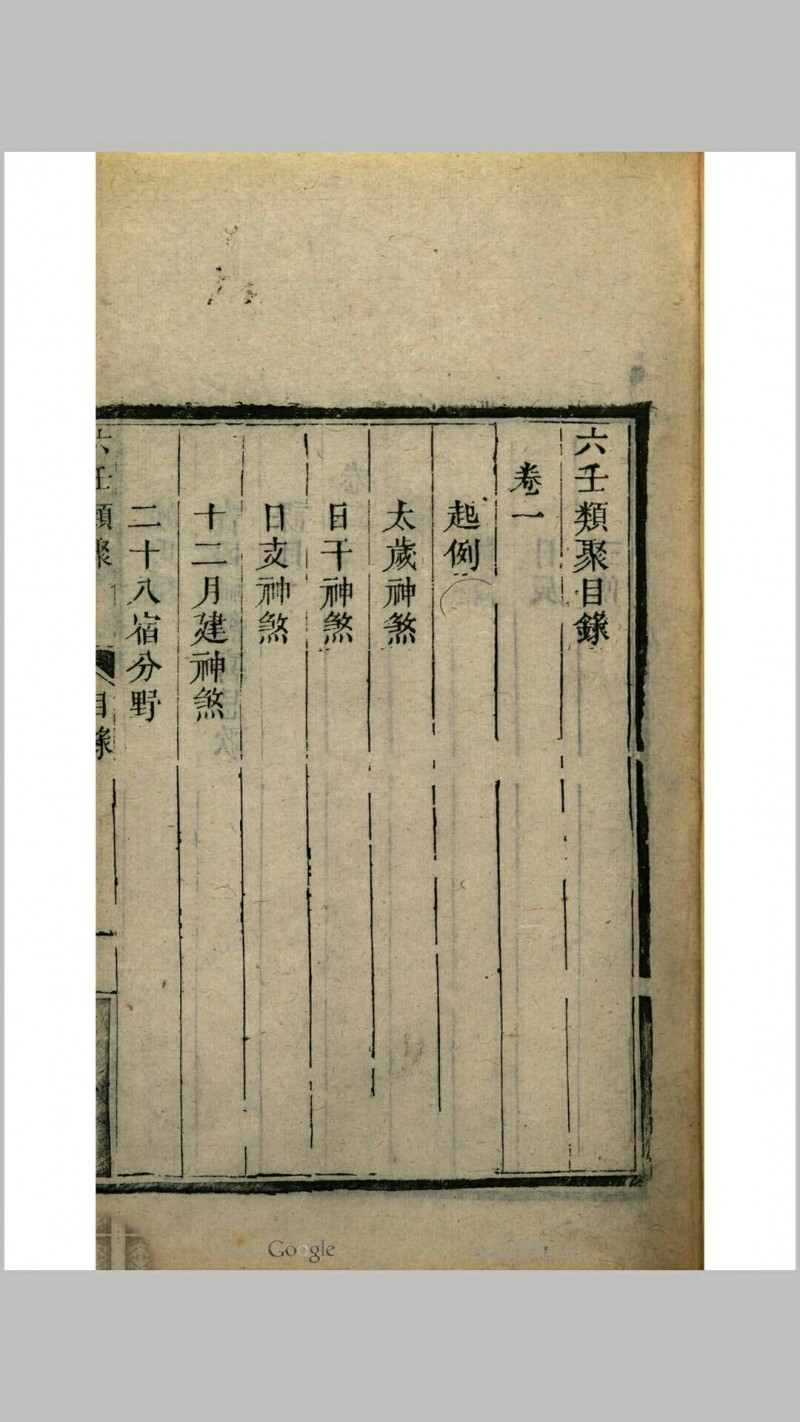 六壬類聚目錄
卷一
起例
太歲神煞
日干神煞
日支神煞
十二月建神煞
二十八宿分野
六壬類聚
目錄
一
Google